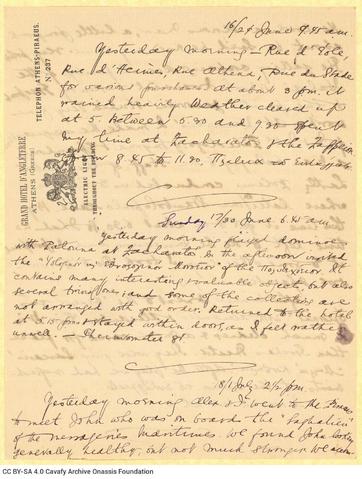 16/29 June 9.45 a.m.
Yesterday morning – Rue d' Eole,
Rue d' Hermes, Rue Athena, Rue du Stade
for various purchases. At about 3 p.m. it
rained heavily. Weather cleared up
at 5. Between 5.30 and 7.30 spent
my time at Zacharatos & the Zappeion
8.45 to 11.30,
GRAND HOTEL D'ANGLETERRE
ATHENS (GREECE)
ELECTRIC LIGHT
THROUGHOUT THE BUILDING
TELEPHON ATHENS-PIRAEUS.
N: 237
Sunday 17/30 June 6.45 a.m.
Yesterday morning played dominoes
with at Zacharatos. In the afternoon visited
the of the It
contains many interesting & valuable objects, but also
several trifling ones; and some of the collections are
not arranged with good order. Returned to the hotel
at 5.15 p.m. & stayed within doors, as I felt rather
unwell. – Thermometer 81
18/1 July 2½ p.m.
Yesterday morning Alex & I went to the Piraeus
to meet John who was on board the
of the Messageries Maritimes. We found John looking
generally healthy, but not much stronger. We
CC BY-SA 4.0 Cavafy Archive Onassis Foundation